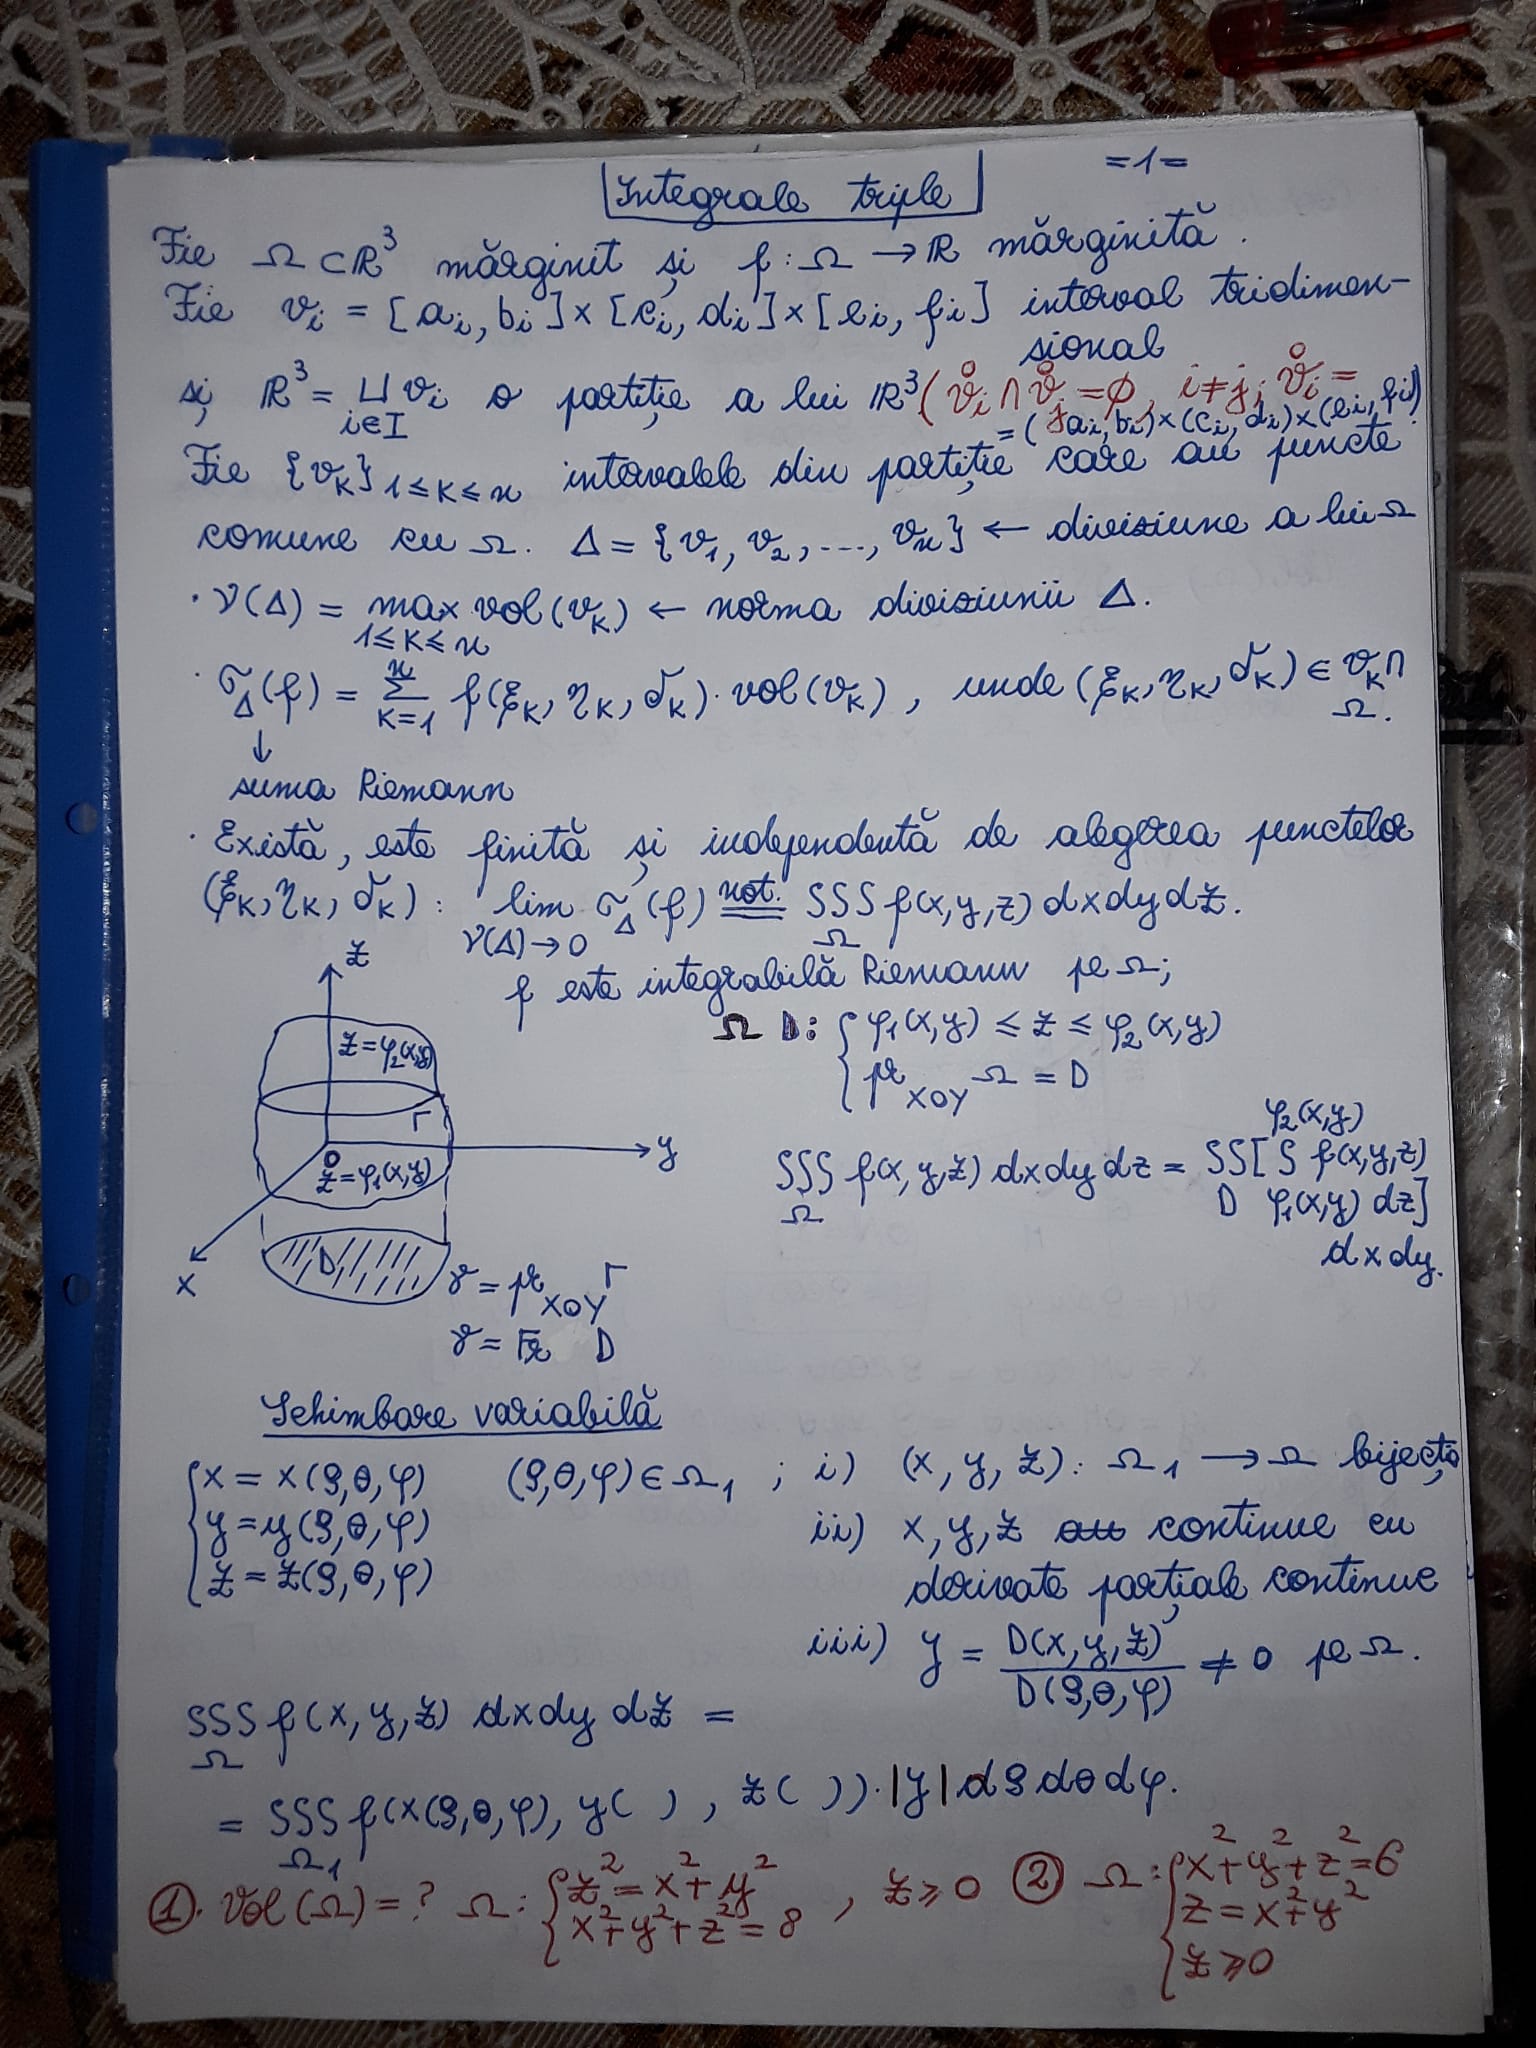 Integrale triple
=1=
Fie Ω ⊂ ℝ³ mărginit și f: Ω → ℝ mărginită.
Fie v_i = [a_i, b_i] × [c_i, d_i] × [e_i, f_i] interval tridimen-
sional
și ℝ³ = ⊔_{i∈I} v_i o partiție a lui ℝ³ (v̊_i ∩ v̊_j = ∅, i ≠ j; v̊_i =
= (a_i, b_i) × (c_i, d_i) × (e_i, f_i))
Fie {v_k}_{1≤k≤n} intervalele din partiție care au puncte
comune cu Ω. Δ = {v_1, v_2, ..., v_n} ← diviziune a lui Ω
· ν(Δ) = max_{1≤k≤n} vol(v_k) ← norma diviziunii Δ.
· σ_Δ(f) = ∑_{k=1}^{n} f(ξ_k, η_k, ζ_k) · vol(v_k), unde (ξ_k, η_k, ζ_k) ∈ v_k ∩
Ω.
↓
suma Riemann
· Există, este finită și independentă de alegerea punctelor
(ξ_k, η_k, ζ_k): lim_{ν(Δ)→0} σ_Δ(f) =^{not.} ∫∫∫_Ω f(x,y,z) dxdydz.
f este integrabilă Riemann pe Ω;
z
z = φ₂(x,y)
Γ
O
y
z = φ₁(x,y)
x
D
γ = pr_{XOY} Γ
γ = Fr D
Ω D: { φ₁(x,y) ≤ z ≤ φ₂(x,y)
pr_{XOY} Ω = D
∫∫∫_Ω f(x,y,z) dxdydz = ∫∫_D [∫_{φ₁(x,y)}^{φ₂(x,y)} f(x,y,z)
dz]
dxdy.
Schimbare variabilă
{ x = x(ρ,θ,φ) (ρ,θ,φ) ∈ Ω₁ ; i) (x,y,z): Ω₁ → Ω bijecție
y = y(ρ,θ,φ) ii) x,y,z au continue cu
z = z(ρ,θ,φ) derivate parțiale continue
iii) J = D(x,y,z)/D(ρ,θ,φ) ≠ 0 pe Ω.
∫∫∫_Ω f(x,y,z) dxdydz =
= ∫∫∫_{Ω₁} f(x(ρ,θ,φ), y( ), z( )) · |J| dρdθdφ.
①. Vol(Ω) = ? Ω: { z² = x² + y²
x² + y² + z² = 8 , z ≥ 0
② Ω: { x² + y² + z² = 6
z = x² + y²
z ≥ 0